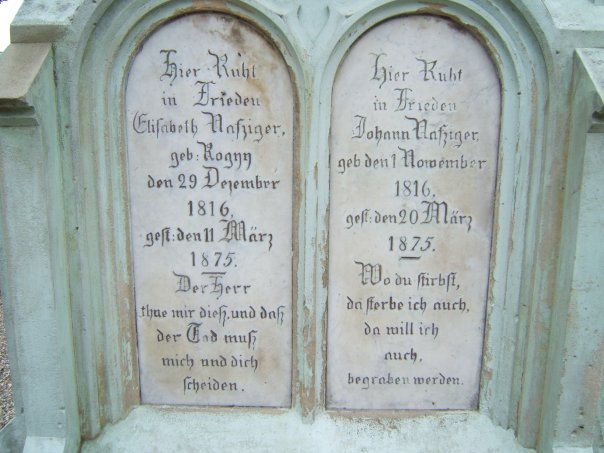 Hier Ruht
in Frieden
Elisabeth Nafziger,
geb: Rogyy
den 29 Dezember
1816,
gest: den 11 März
1875.
Der Herr
thue mir dieß, und daß
der Tod muß
mich und dich
scheiden.
Hier Ruht
in Frieden
Johann Nafziger,
geb den 1 Nowember
1816,
gest: den 20 März
1875.
Wo du stirbst,
da sterbe ich auch,
da will ich
auch,
begraben werden.